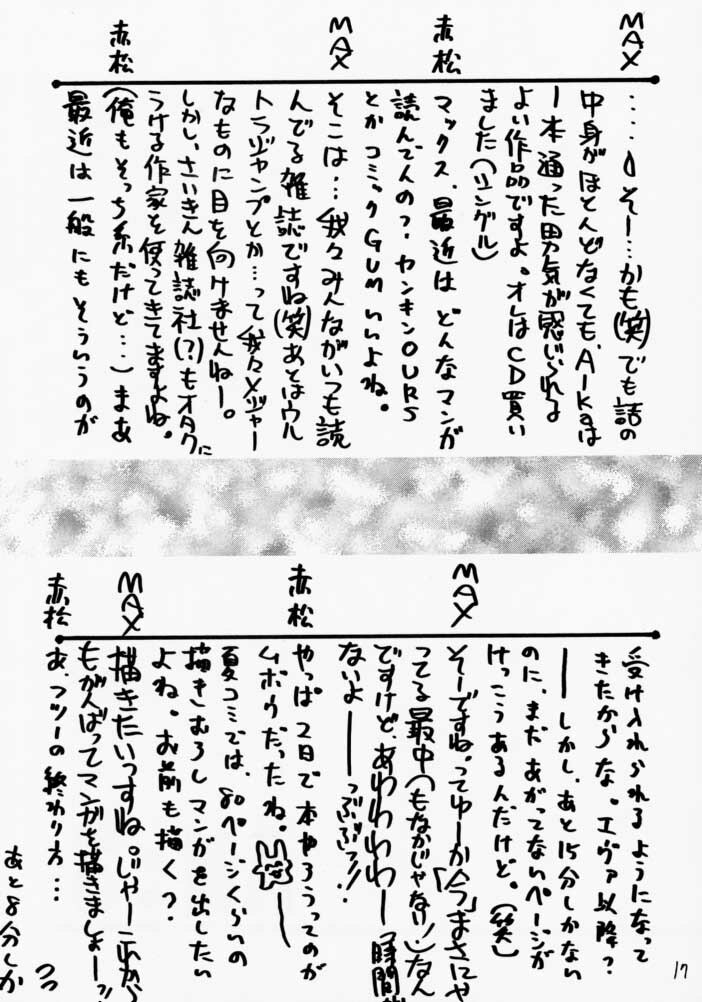 MAX
‥‥うそー…かも(笑)でも話の
中身がほとんどなくても、AIKaは
一本通った男気が感じられる
よい作品ですよ。オレはCD買い
ました(シングル)
赤松
マックス、最近はどんなマンガ
読んでんの?ヤンキンOURS
とかコミックGUMいいよね。
MAX
そこは…我々みんながいつも読
んでる雑誌ですね(笑)あとはウル
トラジャンプとか…って我々メジャー
なものに目を向けませんねー。
赤松
しかし、さいきん雑誌社(?)もオタクに
うける作家を使ってきてますよね。
(俺もそっち系だけど…)まあ
最近は一般にもそういうのが
受け入れられるようになって
きたからな。エヴァ以降?
──しかし、あと15分しかない
のに、まだあがってないページが
けっこうあるんだけど。(笑)
MAX
そーですね。ってゆーか「今」まさにや
ってる最中(もなかじゃない!)なん
ですけど、あわわわわー時間が
ないよ──っぷぷっ!!
赤松
やっぱ2日で本やろうってのが
ムボウだったね。──
夏コミでは、80ページくらいの
描きむろしマンガを出したい
よね。お前も描く?
MAX
描きたいっすね。じゃーこれから
もがんばってマンガを描きましょーっ!!
赤松
あ、フツーの終わり方…
あと8分しか
つづ
17